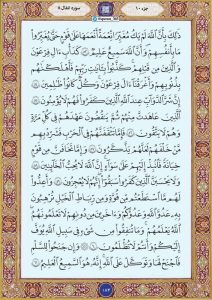 جزء ۱۰
سوره انفال ۸
ذَٰلِكَ بِأَنَّ ٱللَّهَ لَمْ يَكُ مُغَيِّرًا نِّعْمَةً أَنْعَمَهَا عَلَىٰ قَوْمٍ حَتَّىٰ يُغَيِّرُوا۟
مَا بِأَنفُسِهِمْ وَأَنَّ ٱللَّهَ سَمِيعٌ عَلِيمٌ ۝٥٣ كَدَأْبِ ءَالِ فِرْعَوْنَ
وَٱلَّذِينَ مِن قَبْلِهِمْ كَذَّبُوا۟ بِـَٔايَٰتِ رَبِّهِمْ فَأَهْلَكْنَٰهُم
بِذُنُوبِهِمْ وَأَغْرَقْنَآ ءَالَ فِرْعَوْنَ وَكُلٌّ كَانُوا۟ ظَٰلِمِينَ ۝٥٤
إِنَّ شَرَّ ٱلدَّوَآبِّ عِندَ ٱللَّهِ ٱلَّذِينَ كَفَرُوا۟ فَهُمْ لَا يُؤْمِنُونَ ۝٥٥
ٱلَّذِينَ عَٰهَدتَّ مِنْهُمْ ثُمَّ يَنقُضُونَ عَهْدَهُمْ فِى كُلِّ مَرَّةٍ
وَهُمْ لَا يَتَّقُونَ ۝٥٦ فَإِمَّا تَثْقَفَنَّهُمْ فِى ٱلْحَرْبِ فَشَرِّدْ بِهِم
مَّنْ خَلْفَهُمْ لَعَلَّهُمْ يَذَّكَّرُونَ ۝٥٧ وَإِمَّا تَخَافَنَّ مِن قَوْمٍ
خِيَانَةً فَٱنۢبِذْ إِلَيْهِمْ عَلَىٰ سَوَآءٍ إِنَّ ٱللَّهَ لَا يُحِبُّ ٱلْخَآئِنِينَ ۝٥٨
وَلَا يَحْسَبَنَّ ٱلَّذِينَ كَفَرُوا۟ سَبَقُوٓا۟ إِنَّهُمْ لَا يُعْجِزُونَ ۝٥٩ وَأَعِدُّوا۟
لَهُم مَّا ٱسْتَطَعْتُم مِّن قُوَّةٍ وَمِن رِّبَاطِ ٱلْخَيْلِ تُرْهِبُونَ
بِهِۦ عَدُوَّ ٱللَّهِ وَعَدُوَّكُمْ وَءَاخَرِينَ مِن دُونِهِمْ لَا تَعْلَمُونَهُمُ
ٱللَّهُ يَعْلَمُهُمْ وَمَا تُنفِقُوا۟ مِن شَىْءٍ فِى سَبِيلِ ٱللَّهِ يُوَفَّ
إِلَيْكُمْ وَأَنتُمْ لَا تُظْلَمُونَ ۝٦٠ وَإِن جَنَحُوا۟ لِلسَّلْمِ
فَٱجْنَحْ لَهَا وَتَوَكَّلْ عَلَى ٱللَّهِ إِنَّهُۥ هُوَ ٱلسَّمِيعُ ٱلْعَلِيمُ ۝٦١
۱۸۴